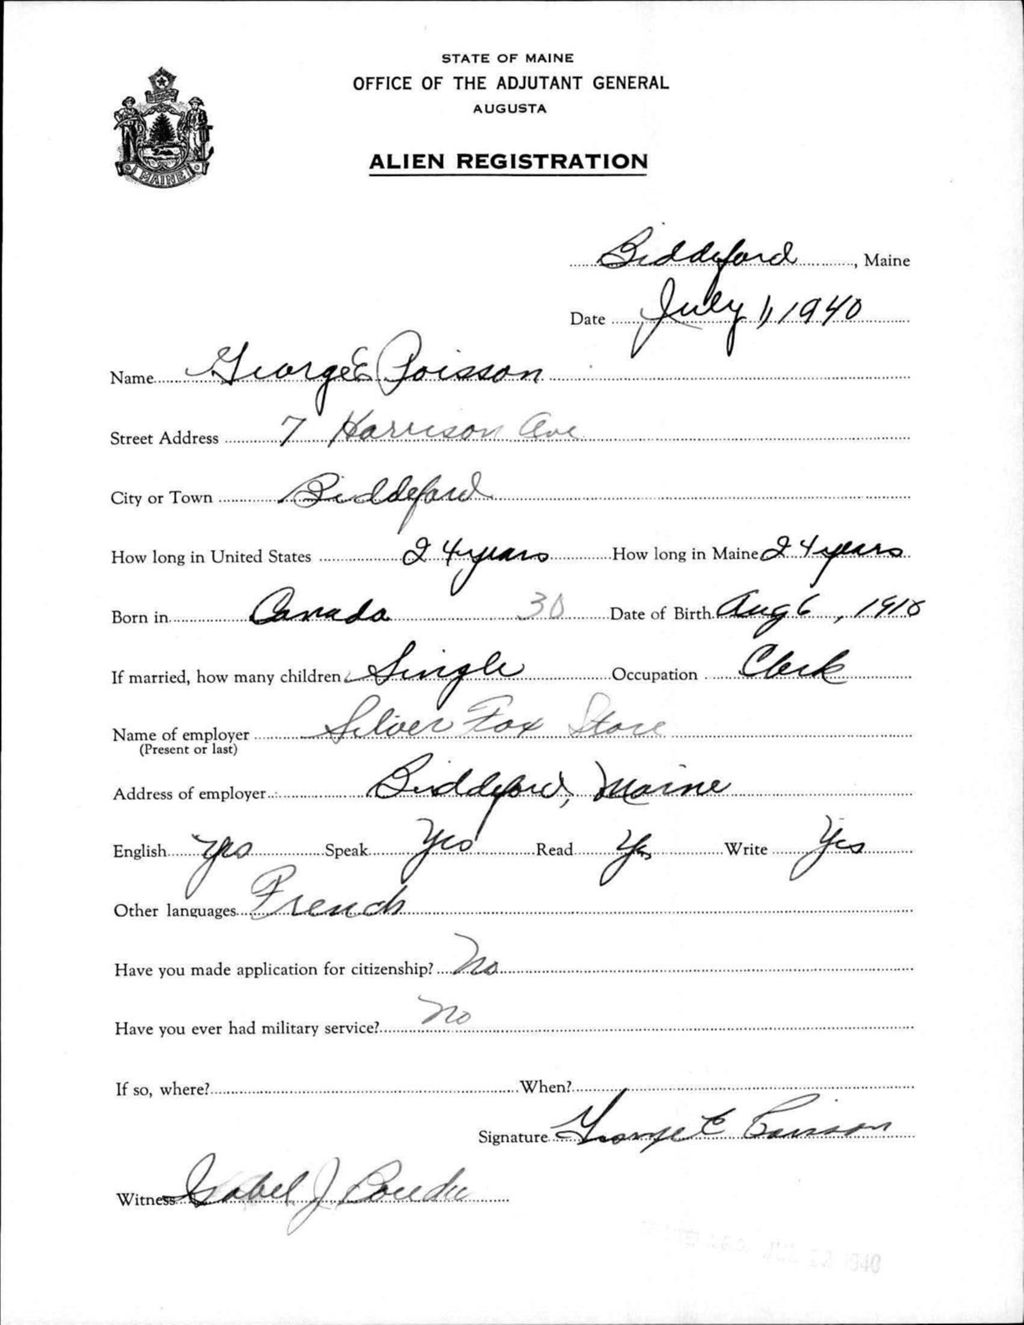 STATE OF MAINE
OFFICE OF THE ADJUTANT GENERAL
AUGUSTA
MAINE
ALIEN REGISTRATION
Biddeford, Maine
Date July 1, 1940
Name George E Poisson
Street Address 7 Harrison Ave
City or Town Biddeford
How long in United States 24 years How long in Maine 24 years
Born in Canada 30 Date of Birth Aug 6, 1910
If married, how many children Single Occupation Clerk
Name of employer Silver Fox Store
(Present or last)
Address of employer Biddeford, Maine
English Yes Speak Yes Read Yes Write Yes
Other languages French
Have you made application for citizenship? No
Have you ever had military service? No
If so, where? When?
Signature George E Poisson
Witness Isabel J